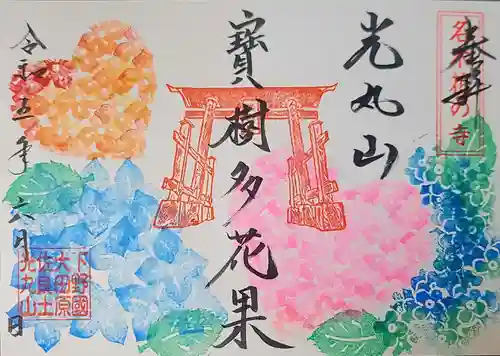 奉拝
の寺
光丸山
寶樹多花果
令和五年六月 日
下野國
大田原
佐良土
光丸山